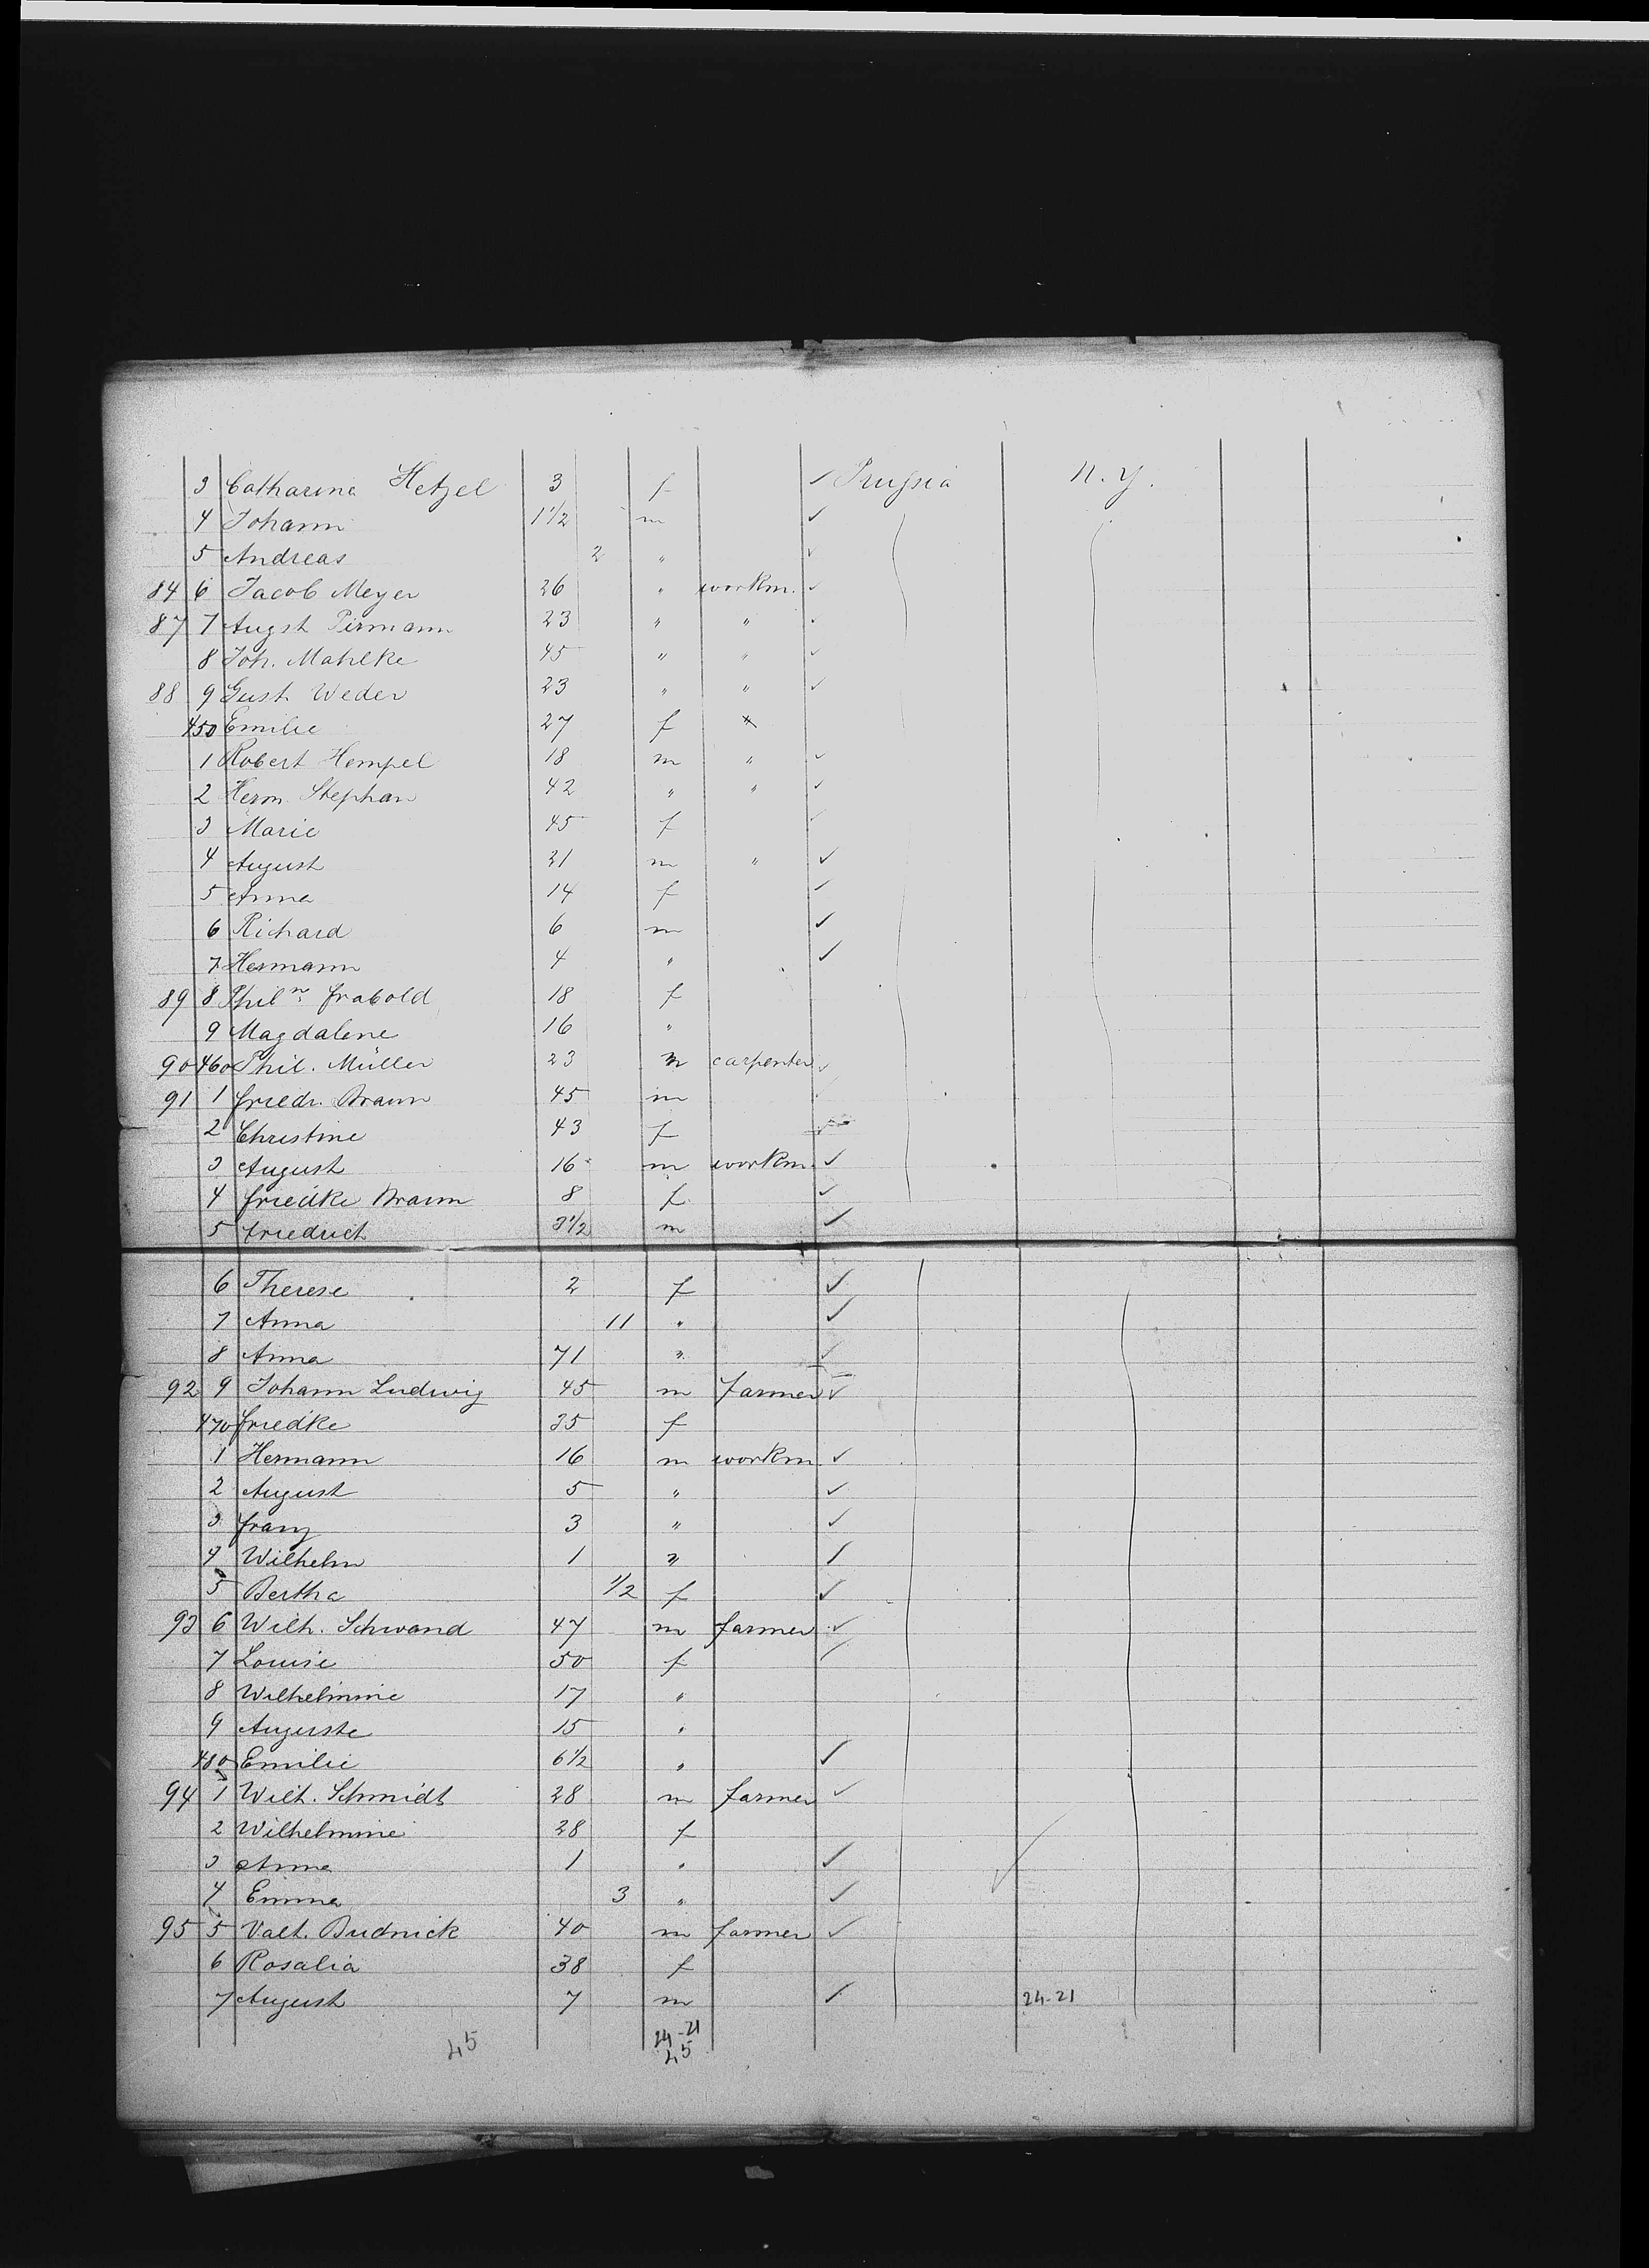 3 Catharina Hetzel 3 f ✓ Prussia N. Y.
4 Johann 1 1/2 m ✓
5 Andreas 2 " ✓
84 6 Jacob Meyer 26 " workm. ✓
87 7 Augst Pirmann 23 " "
8 Joh. Mahlke 45 " " ✓
88 9 Gust Weder 23 " " ✓
450 Emilie 27 f
1 Robert Hempel 18 m " ✓
2 Herm Stephan 42 " " ✓
3 Marie 45 f ✓
4 August 21 m " ✓
5 Anna 14 f ✓
6 Richard 6 m ✓
7 Hermann 4 " ✓
89 8 Philn. Frabold 18 f
9 Magdalene 16 "
90 460 Phil. Müller 23 m carpenter ✓
91 1 Friedr. Braun 45 m
2 Christine 43 f
3 August 16 m workm. ✓
4 Friedke Braun 8 f ✓
5 Friedrich 3 1/2 m ✓
6 Therese 2 f ✓
7 Anna 11 " ✓
8 Anna 71 " ✓
92 9 Johann Ludwig 45 m farmer ✓
470 Friedke 35 f
1 Hermann 16 m workm ✓
2 August 5 " ✓
3 Franz 3 " ✓
4 Wilhelm 1 " ✓
5 Bertha 1/2 f ✓
93 6 Wilh. Schwand 47 m farmer ✓
7 Louise 50 f ✓
8 Wilhelmine 17 "
9 Auguste 15 "
480 Emilie 6 1/2 " ✓
94 1 Wilh. Schmidt 28 m farmer ✓
2 Wilhelmine 28 f
3 Anna 1 " ✓
4 Emma 3 " ✓
95 5 Valt. Budnick 40 m farmer ✓
6 Rosalia 38 f
7 August 7 m ✓ 24-21
45 24-21
45